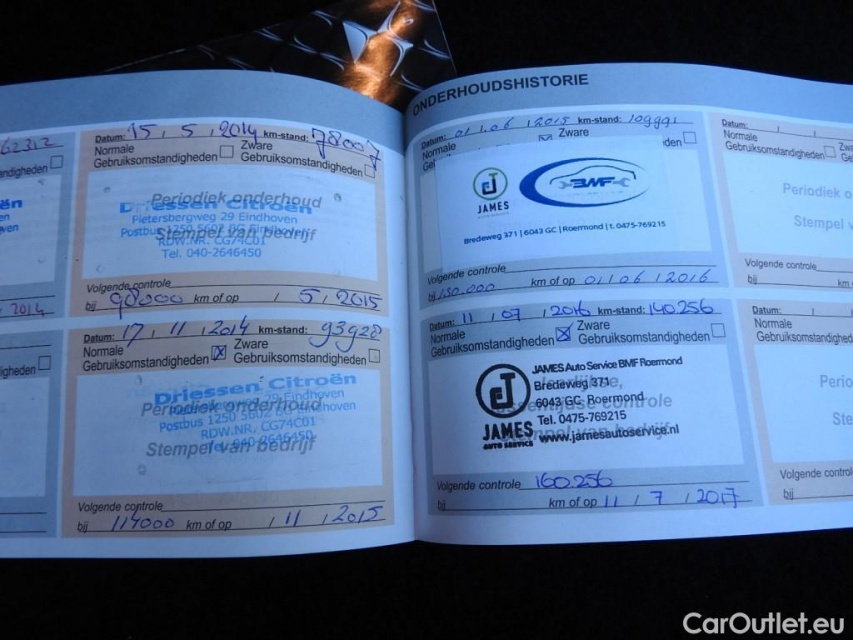 62312
ndigheden
ën
ven
2014
igheden
Datum: 15 / 5 / 2014 km-stand: 78007
Normale Zware
Gebruiksomstandigheden Gebruiksomstandigheden
Periodiek onderhoud
Driessen Citroën
Pietersbergweg 29 Eindhoven
Postbus 1250 5602 BG Eindhoven
Stempel van bedrijf
RDW.NR. CG74C01
Tel. 040-2646450
Volgende controle
bij 98000 km of op / 5 / 2015
Datum: 17 / 11 / 2014 km-stand: 93928
Normale Zware
Gebruiksomstandigheden Gebruiksomstandigheden
Driessen Citroën
Periodiek onderhoud
Pietersbergweg 29 Eindhoven
Postbus 1250 5602 BG Eindhoven
RDW.NR. CG74C01
Stempel van bedrijf
Tel. 040-2646450
Volgende controle
bij 114000 km of op / 11 / 2015
ONDERHOUDSHISTORIE
Datum: 01 / 06 / 2015 km-stand: 109991
Normale Zware
den
JAMES
BMF
Bredeweg 371 | 6043 GC | Roermond | t. 0475-769215
Volgende controle
bij 130.000 km of op 01 / 06 / 2016
Datum: 11 / 07 / 2016 km-stand: 140256
Normale Zware
Gebruiksomstandigheden Gebruiksomstandigheden
JAMES Auto Service BMF Roermond
Bredeweg 371
6043 GC Roermond
Tel. 0475-769215
www.jamesautoservice.nl
JAMES
AUTO SERVICE
Stempel van bedrijf
Volgende controle 160.256
bij km of op 11 / 7 / 2017
Datum: / /
Normale Zwa
Gebruiksomstandigheden Ge
Periodiek o
Stempel va
Volgende controle
bij km
Datum: / /
Normale
Gebruiksomstandighede
Perio
Ste
Volgende controle
bij
CarOutlet.eu